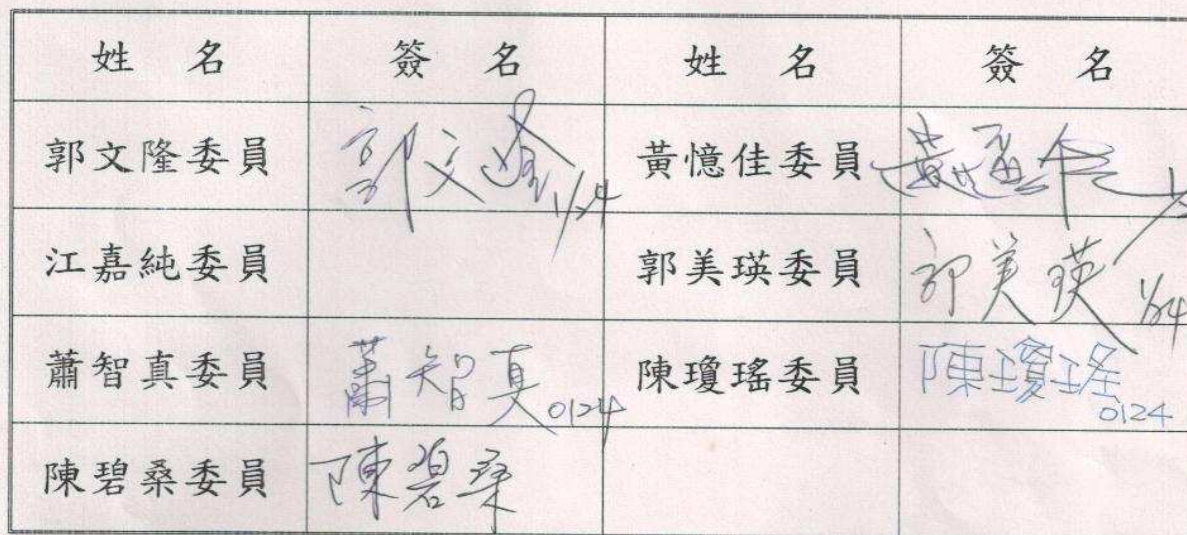 姓 名 簽 名 姓 名 簽 名
郭文隆委員 郭文隆 1/24 黃憶佳委員
江嘉純委員 郭美瑛委員 郭美瑛 1/24
蕭智真委員 蕭智真 0124 陳瓊瑤委員 陳瓊瑤 0124
陳碧桑委員 陳碧桑